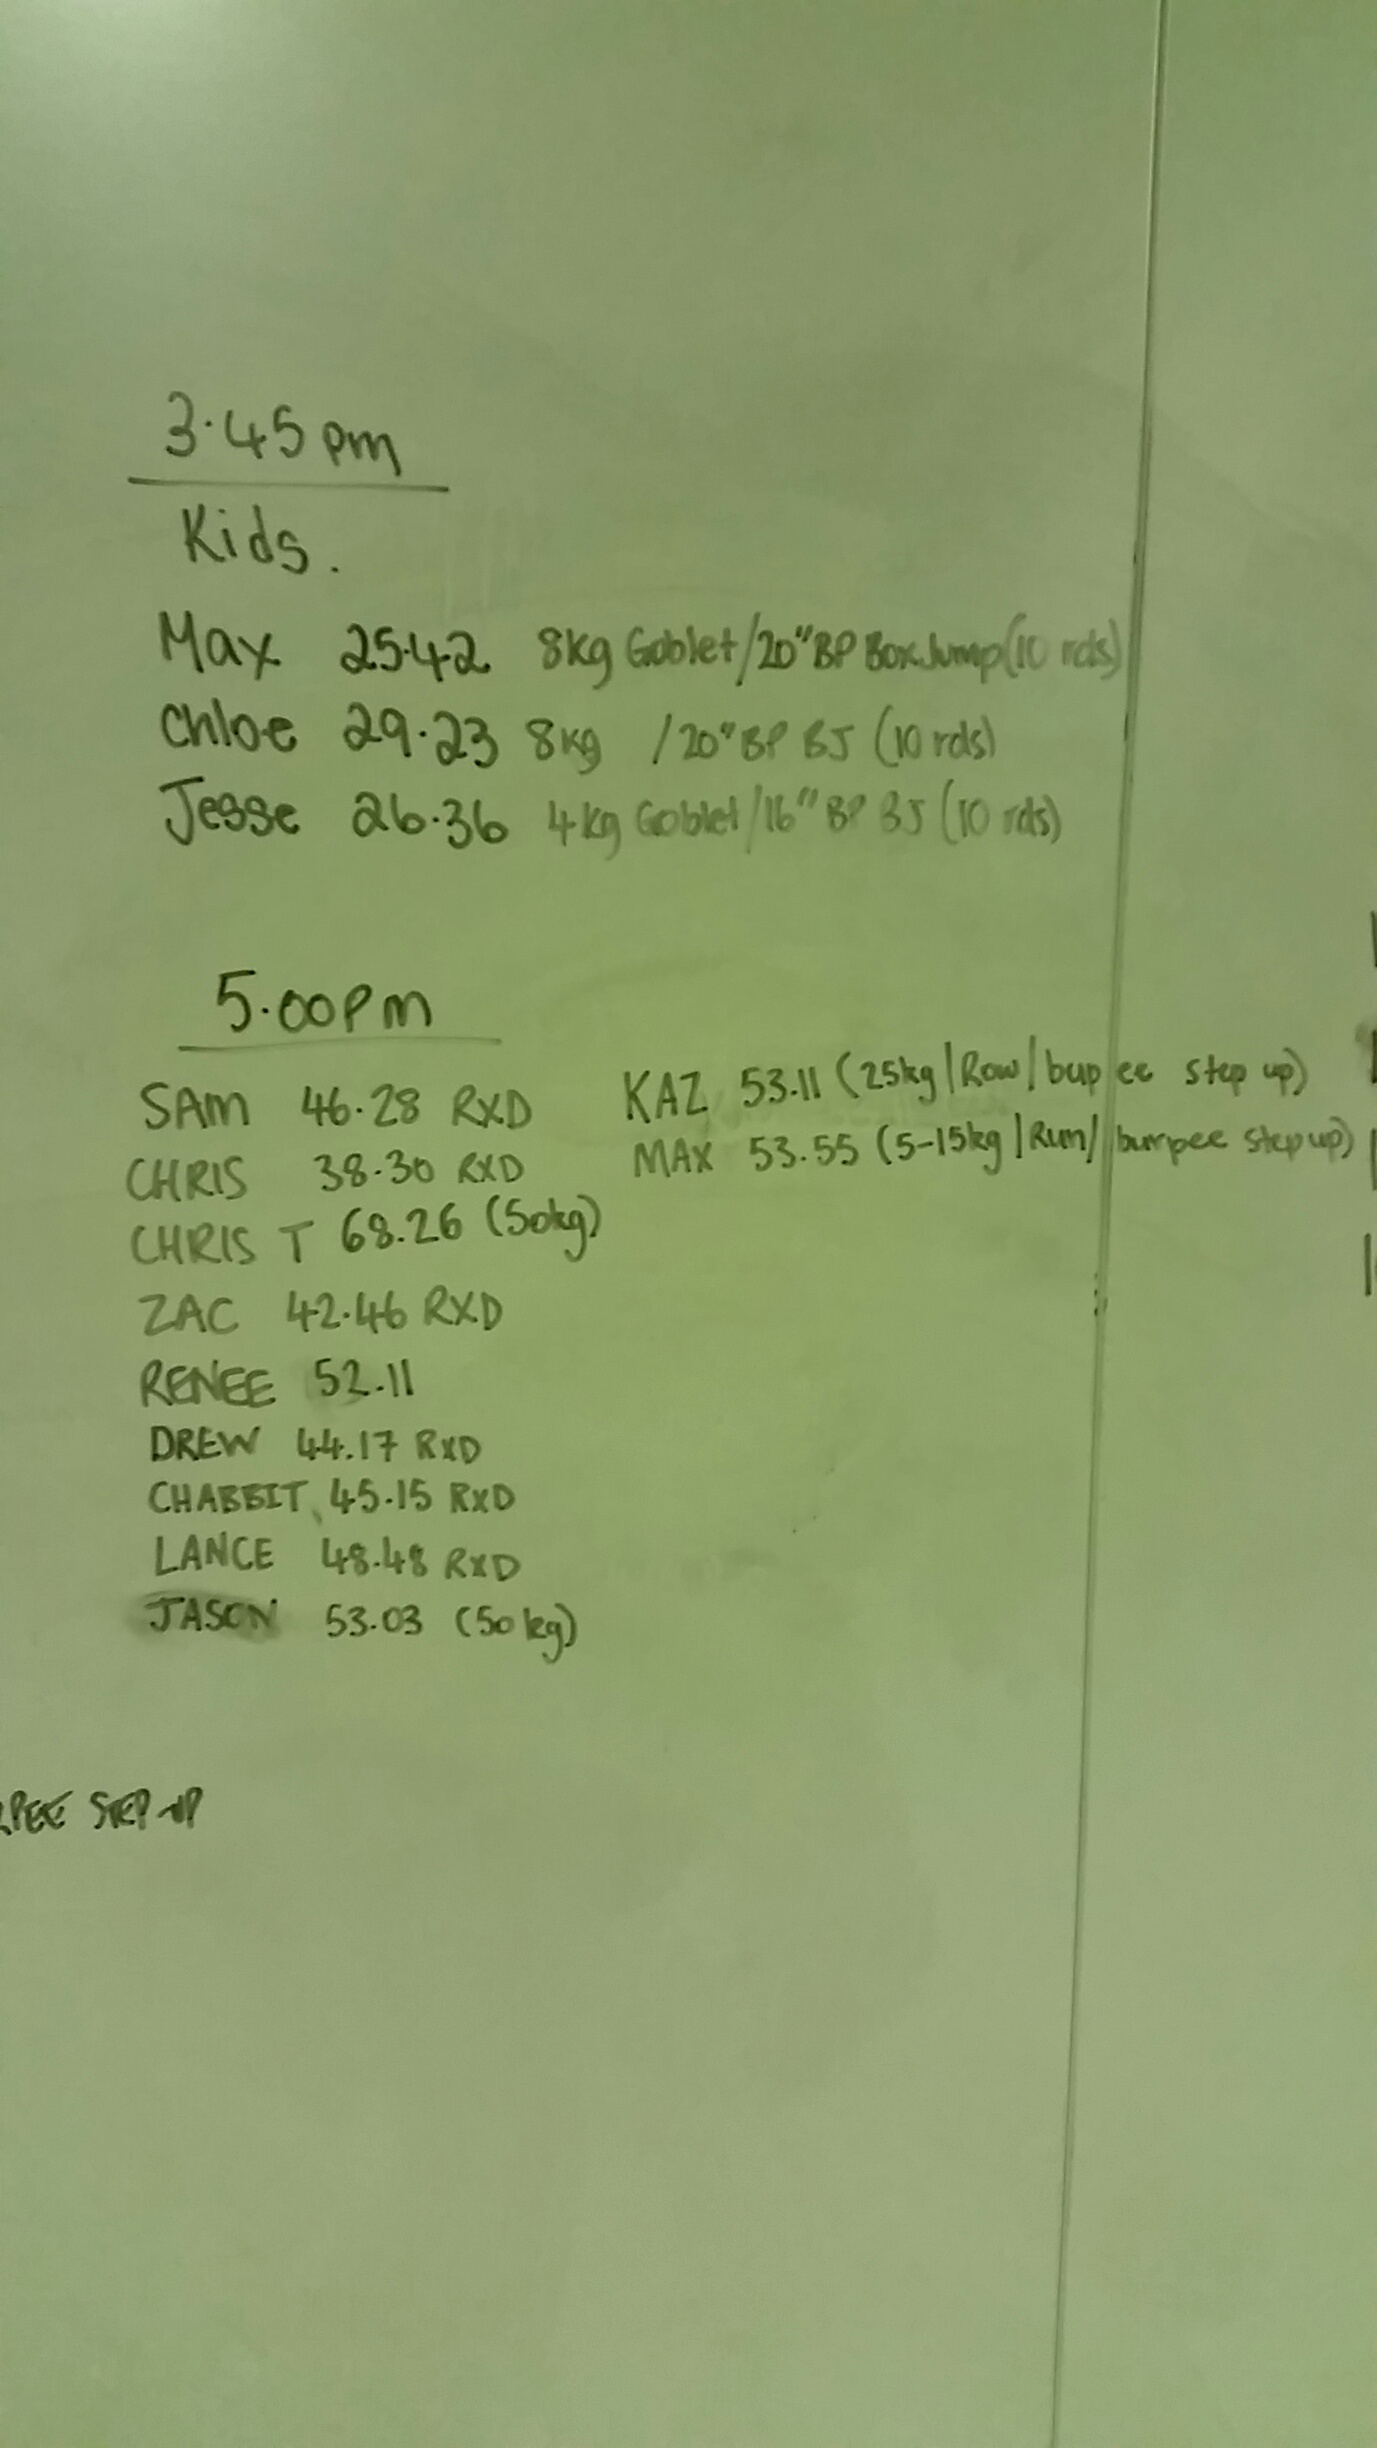 3.45pm
Kids.
Max 25.42 8kg Goblet/20"BP Box Jump(10 rds)
Chloe 29.23 8kg /20"BP BJ (10 rds)
Jesse 26.36 4kg Goblet/16"BP BJ (10 rds)
5.00pm
SAM 46.28 RXD
CHRIS 38.30 RXD
CHRIS T 68.26 (50kg)
ZAC 42.46 RXD
RENEE 52.11
DREW 44.17 RXD
CHABBIT 45.15 RXD
LANCE 48.48 RXD
JASON 53.03 (50kg)
KAZ 53.11 (25kg|Row|bupee step up)
MAX 53.55 (5-15kg|Run/burpee step up)
STEP UP